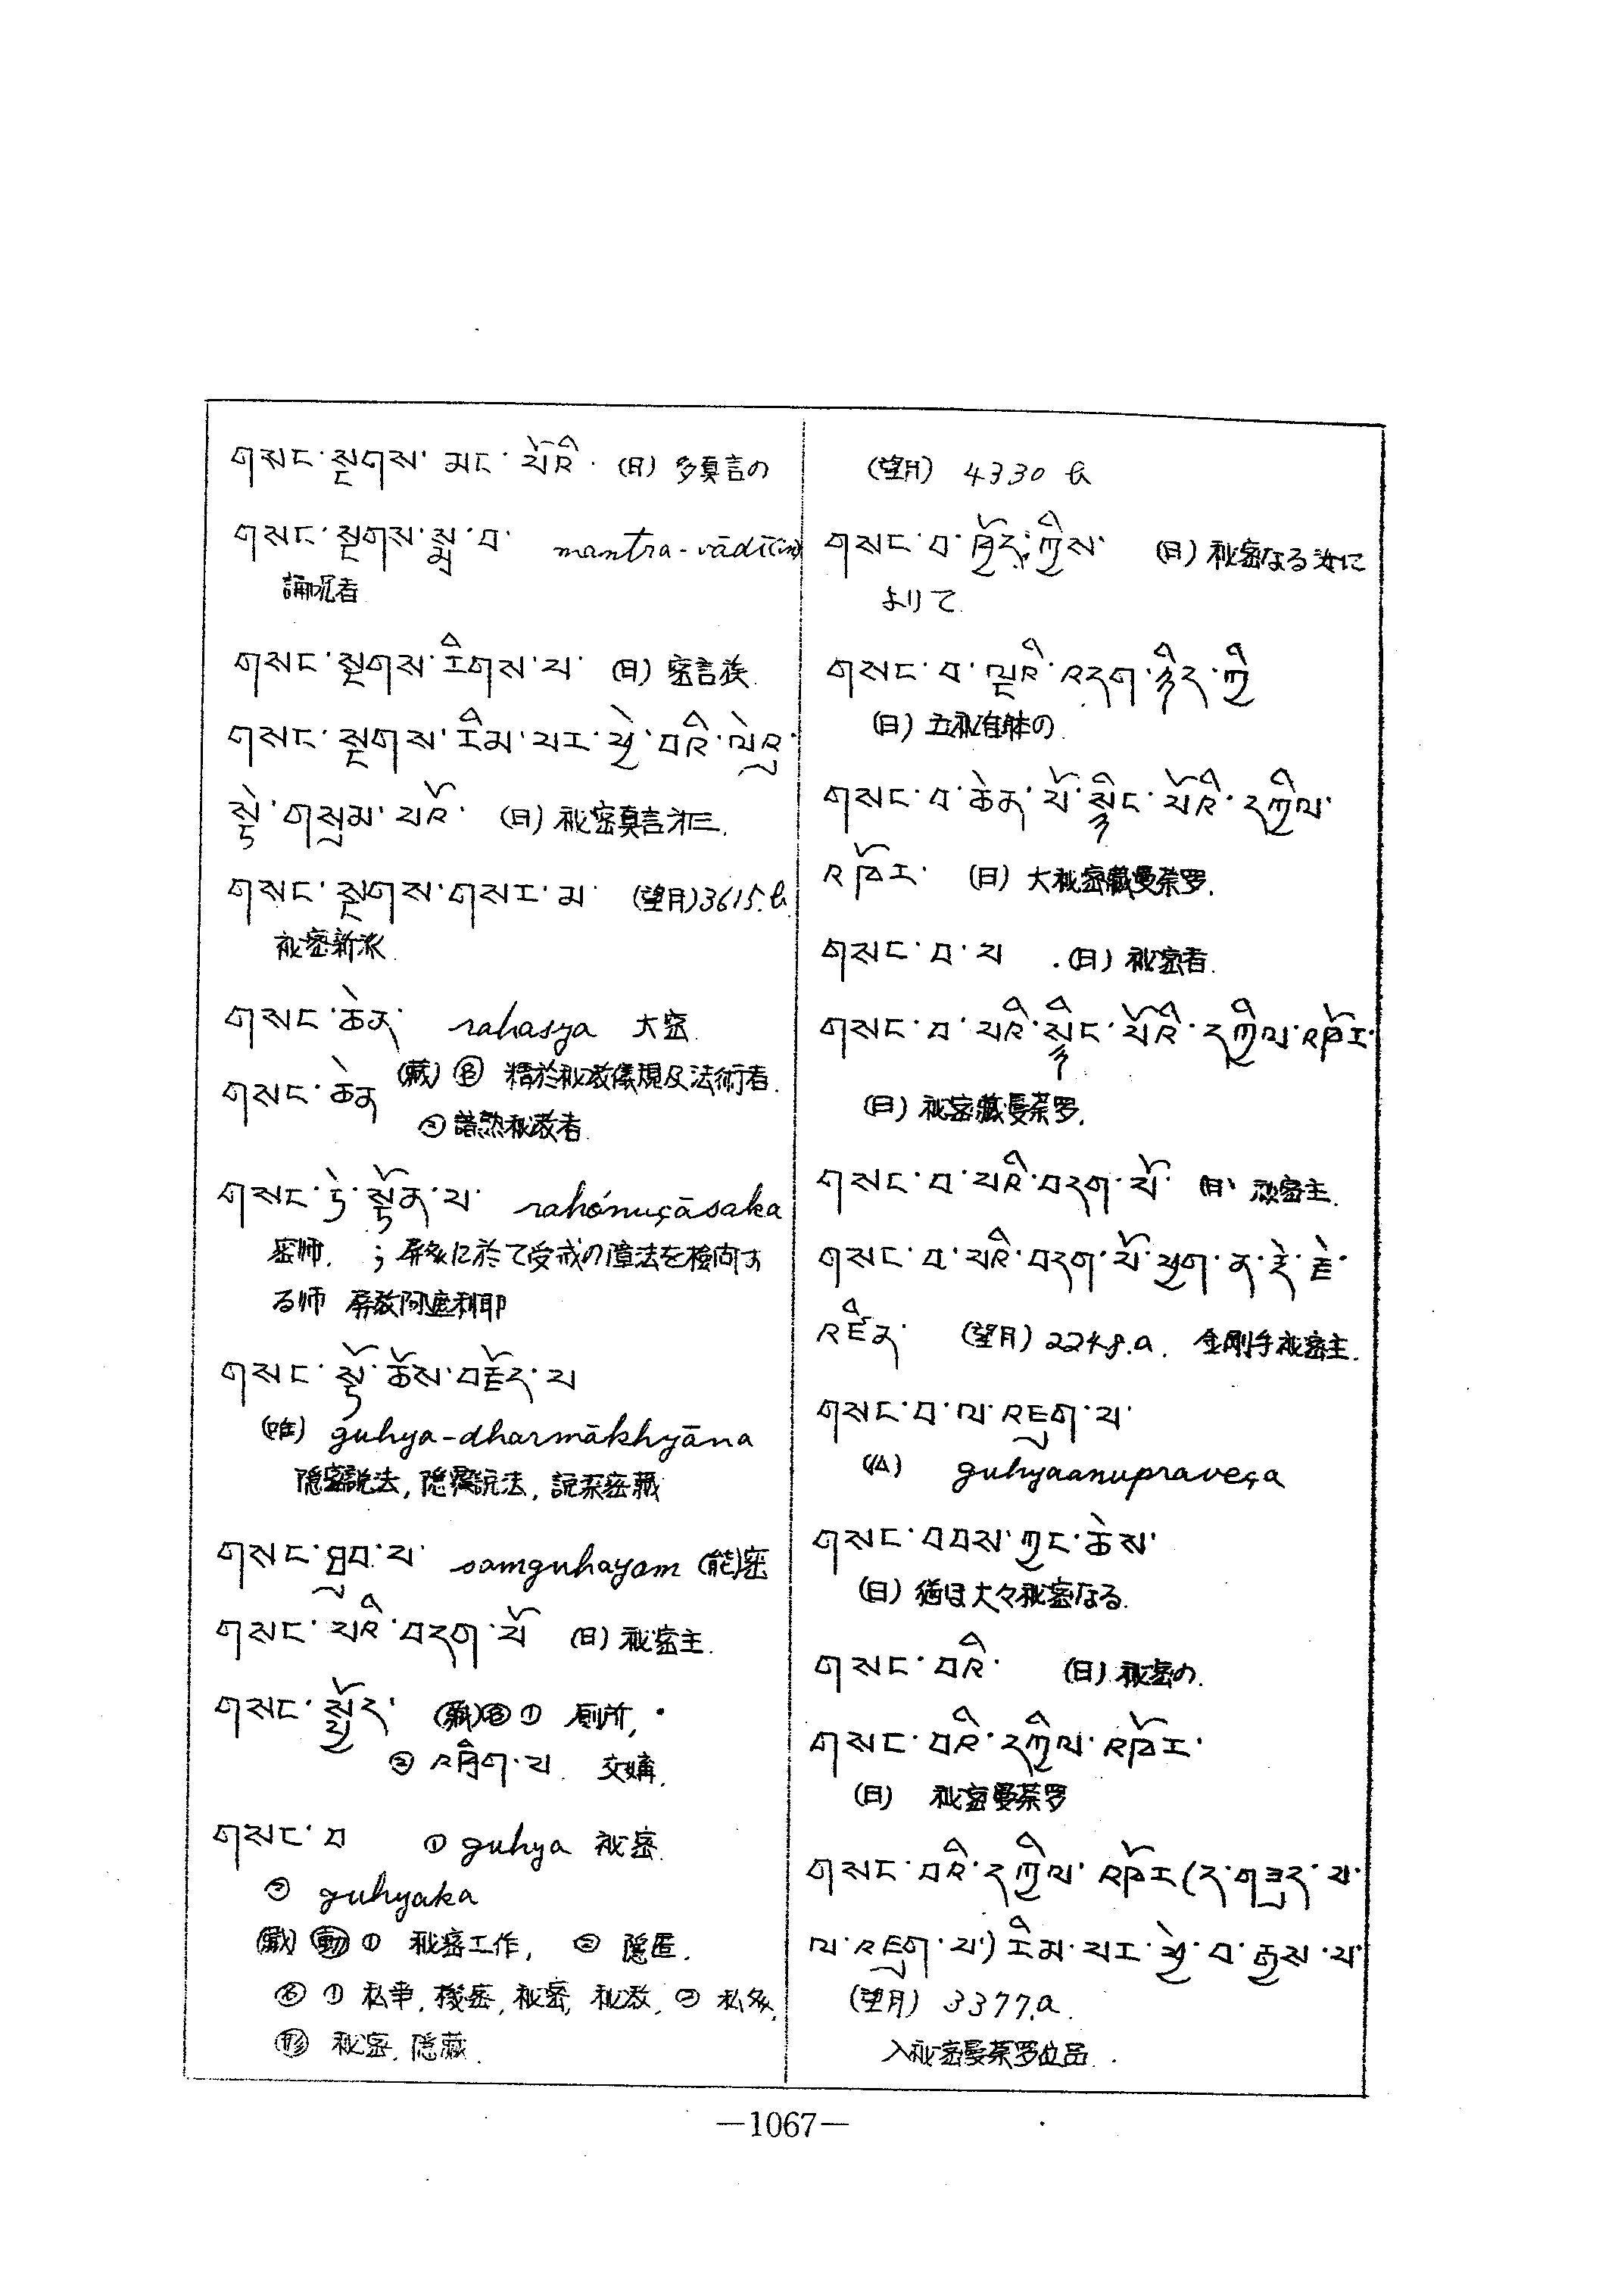 གསང་སྔགས་མང་པོའི་ (日) 多真言の
གསང་སྔགས་སྨྲ་བ་ mantra-vādī(in)
誦呪者
གསང་སྔགས་རིགས་པ་ (日) 密言族
གསང་སྔགས་རིམ་པར་ཕྱེ་བའི་ལེའུ་
སྟེ་གསུམ་པའོ་ (日) 秘密真言才三.
གསང་སྔགས་གསར་མ་ (望月) 3615.b
秘密新派
གསང་ཆེན་ rahasya 大密
གསང་ཆེན (藏) 名 精於秘密儀規及法術者.
② 諳熟秘密者
གསང་ཏེ་སྟོན་པ་ rahónuçāsaka
密师. ; 屏処に於て受戒の障法を検向す
る师 屏教阿遮利耶
གསང་སྟོ་ཆོས་བརྗོད་པ
(唯) guhya-dharmākhyāna
隠密説法, 隠覆説法, 説深密藏
གསང་ཐུབ་པ་ samguhayam (能)密
གསང་པའི་བདག་པོ (日) 秘密主.
གསང་སྤྱོད་ (藏) 名 ① 厠所,
② འཁྲིག་པ. 交媾.
གསང་བ ① guhya 秘密.
② guhyaka
(藏) 動 ① 秘密工作, ② 隠匿.
名 ① 私事, 機密, 秘密, 秘教, ② 私処,
形 秘密, 隠藏.
(望月) 4330 b
གསང་བ་ཁྱོད་ཀྱིས་ (日) 秘密なる汝に
よりて.
གསང་བ་ལྔའི་བདག་ཉིད་ཀྱི
(日) 五秘自体の.
གསང་བ་ཆེན་པོ་སྙིང་པོའི་དཀྱིལ་
འཁོར་ (日) 大秘密藏曼荼罗.
གསང་བ་པ (日) 秘密者.
གསང་བ་པའི་སྙིང་པོའི་དཀྱིལ་འཁོར་
(日) 秘密藏曼荼罗.
གསང་བ་པའི་བདག་པོ་ (日) 秘密主.
གསང་བ་པའི་བདག་པོ་ཕྱག་ན་རྡོ་རྗེ་
འཛིན་ (望月) 2248.a. 金剛手秘密主.
གསང་བ་ལ་འཇུག་པ་
guhyaanupraveça
གསང་བབས་ཀྱང་ཆེས་
(日) 猶ほ大々秘密なる.
གསང་བའི་ (日) 秘密の.
གསང་བའི་དཀྱིལ་འཁོར་
(日) 秘密曼荼罗
གསང་བའི་དཀྱིལ་འཁོར(ད་གཟུད་པ་
ལ་འཇུག་པ་) རིམ་པར་ཕྱེ་བ་རྒྱས་པ་
(望月) 3377.a.
入秘密曼荼罗位品.
—1067—